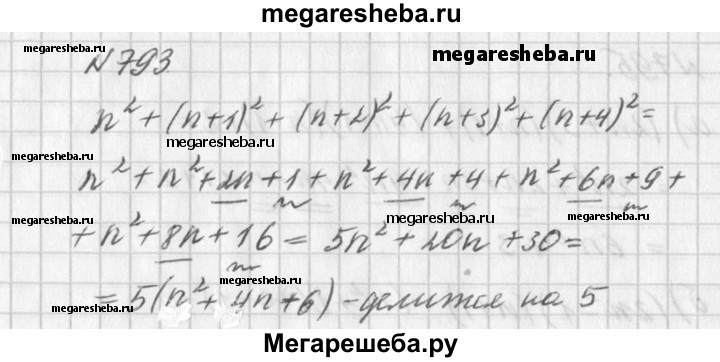 megaresheba.ru
№793
megaresheba.ru
megaresheba.ru
n² + (n+1)² + (n+2)² + (n+3)² + (n+4)² =
megaresheba.ru
megaresheba.ru
n² + n² + 2n + 1 + n² + 4n + 4 + n² + 6n + 9 +
megaresheba.ru
megaresheba.ru
megaresheba.ru
+ n² + 8n + 16 = 5n² + 20n + 30 =
megaresheba.ru
megaresheba.ru
megaresheba.ru
= 5(n² + 4n + 6) - делится на 5
Мегарешеба.ру